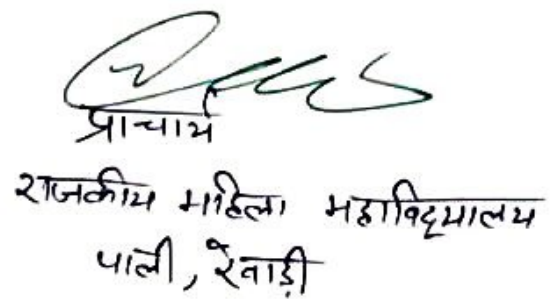 प्राचार्य
राजकीय महिला महाविद्यालय
पाली, रेवाड़ी